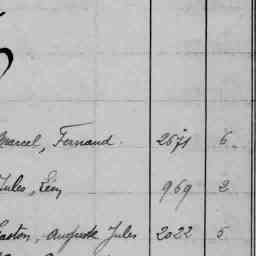 Marcel, Fernand. 2671 6.
Jules, Léon 969 2
Gaston, Auguste Jules 2022 5